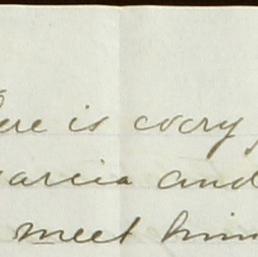 ere is every
arcia and
meet him